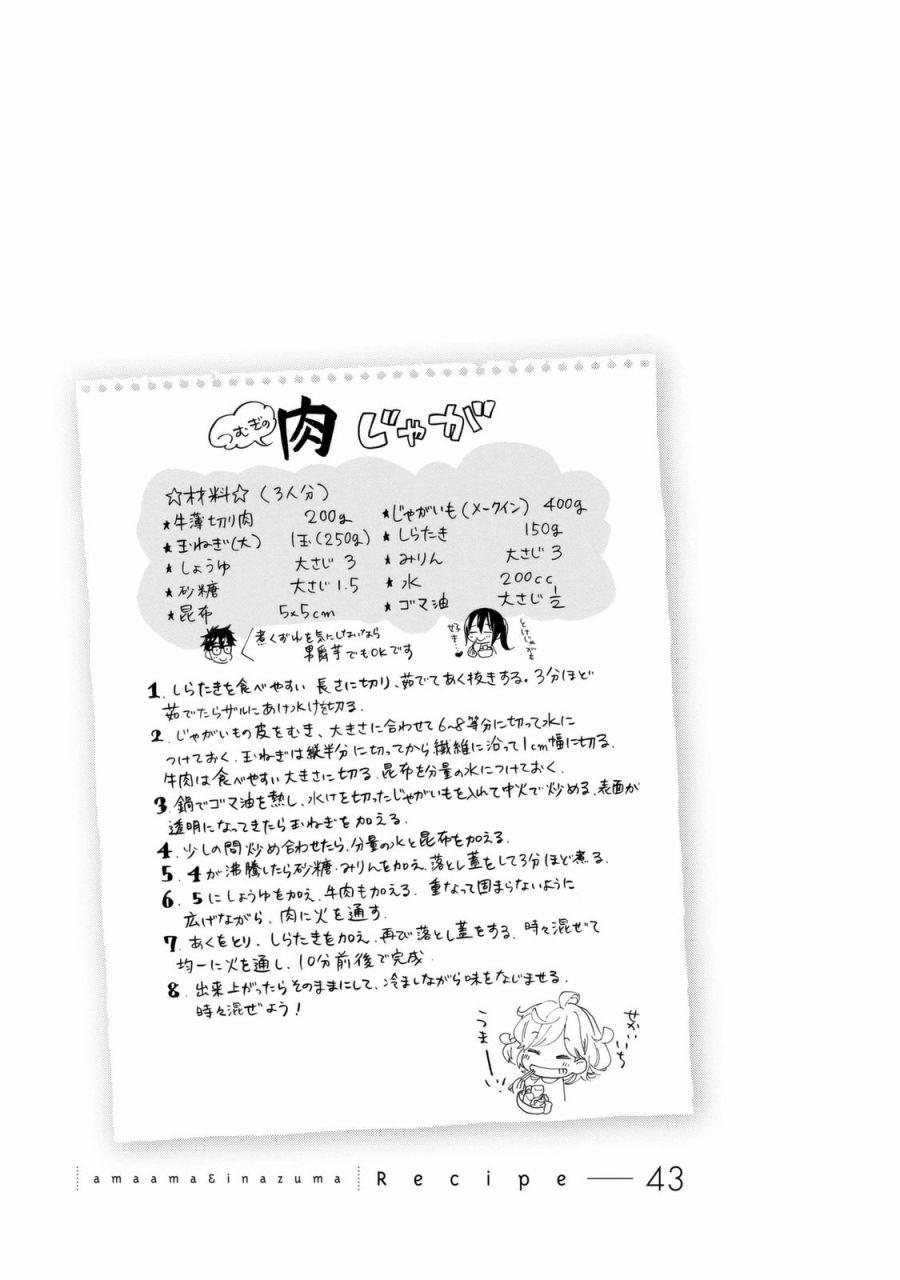 つむぎの
肉じゃが
☆材料☆（3人分）
★牛薄切り肉 200g
★玉ねぎ(大) 1玉(250g)
★しょうゆ 大さじ 3
★砂糖 大さじ 1.5
★昆布 5×5cm
★じゃがいも(メークイン) 400g
★しらたき 150g
★みりん 大さじ 3
★水 200cc
★ゴマ油 大さじ 1/2
煮くずれを気にしないなら
男爵芋でもOKです
とけじゃがも
好き…♥
1. しらたきを食べやすい長さに切り、茹でてあく抜きする。3分ほど
茹でたらザルにあけ水けを切る.
2. じゃがいもの皮をむき、大きさに合わせて6~8等分に切って水に
つけておく.玉ねぎは縦半分に切ってから繊維に沿って1cm幅に切る.
牛肉は食べやすい大きさに切る.昆布を分量の水につけておく.
3. 鍋でゴマ油を熱し、水けを切ったじゃがいもを入れて中火で炒める.表面が
透明になってきたら玉ねぎを加える.
4. 少しの間炒め合わせたら、分量の水と昆布を加える.
5. 4が沸騰したら砂糖・みりんを加え、落とし蓋をして3分ほど煮る.
6. 5にしょうゆを加え、牛肉も加える. 重なって固まらないように
広げながら、肉に火を通す.
7. あくをとり、しらたきを加え、再び落とし蓋をする.時々混ぜて
均一に火を通し、10分前後で完成.
8. 出来上がったらそのままにして、冷ましながら味をなじませる.
時々混ぜよう!
せかいいち
うまーい!
amaama&inazuma Recipe — 43